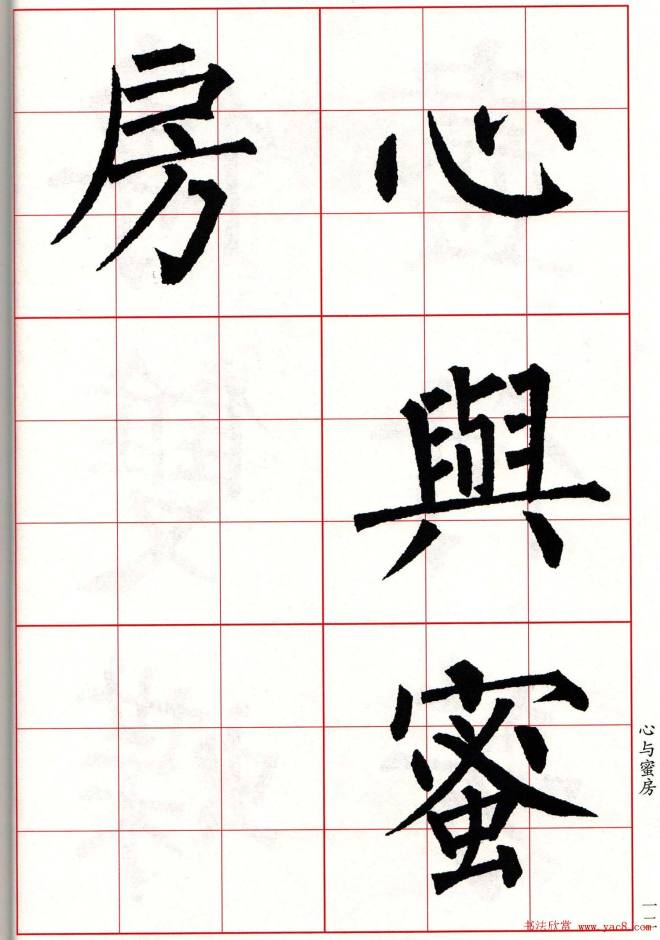 心與蜜
房
心与蜜房
一一一
书法欣赏 www.yac8.com